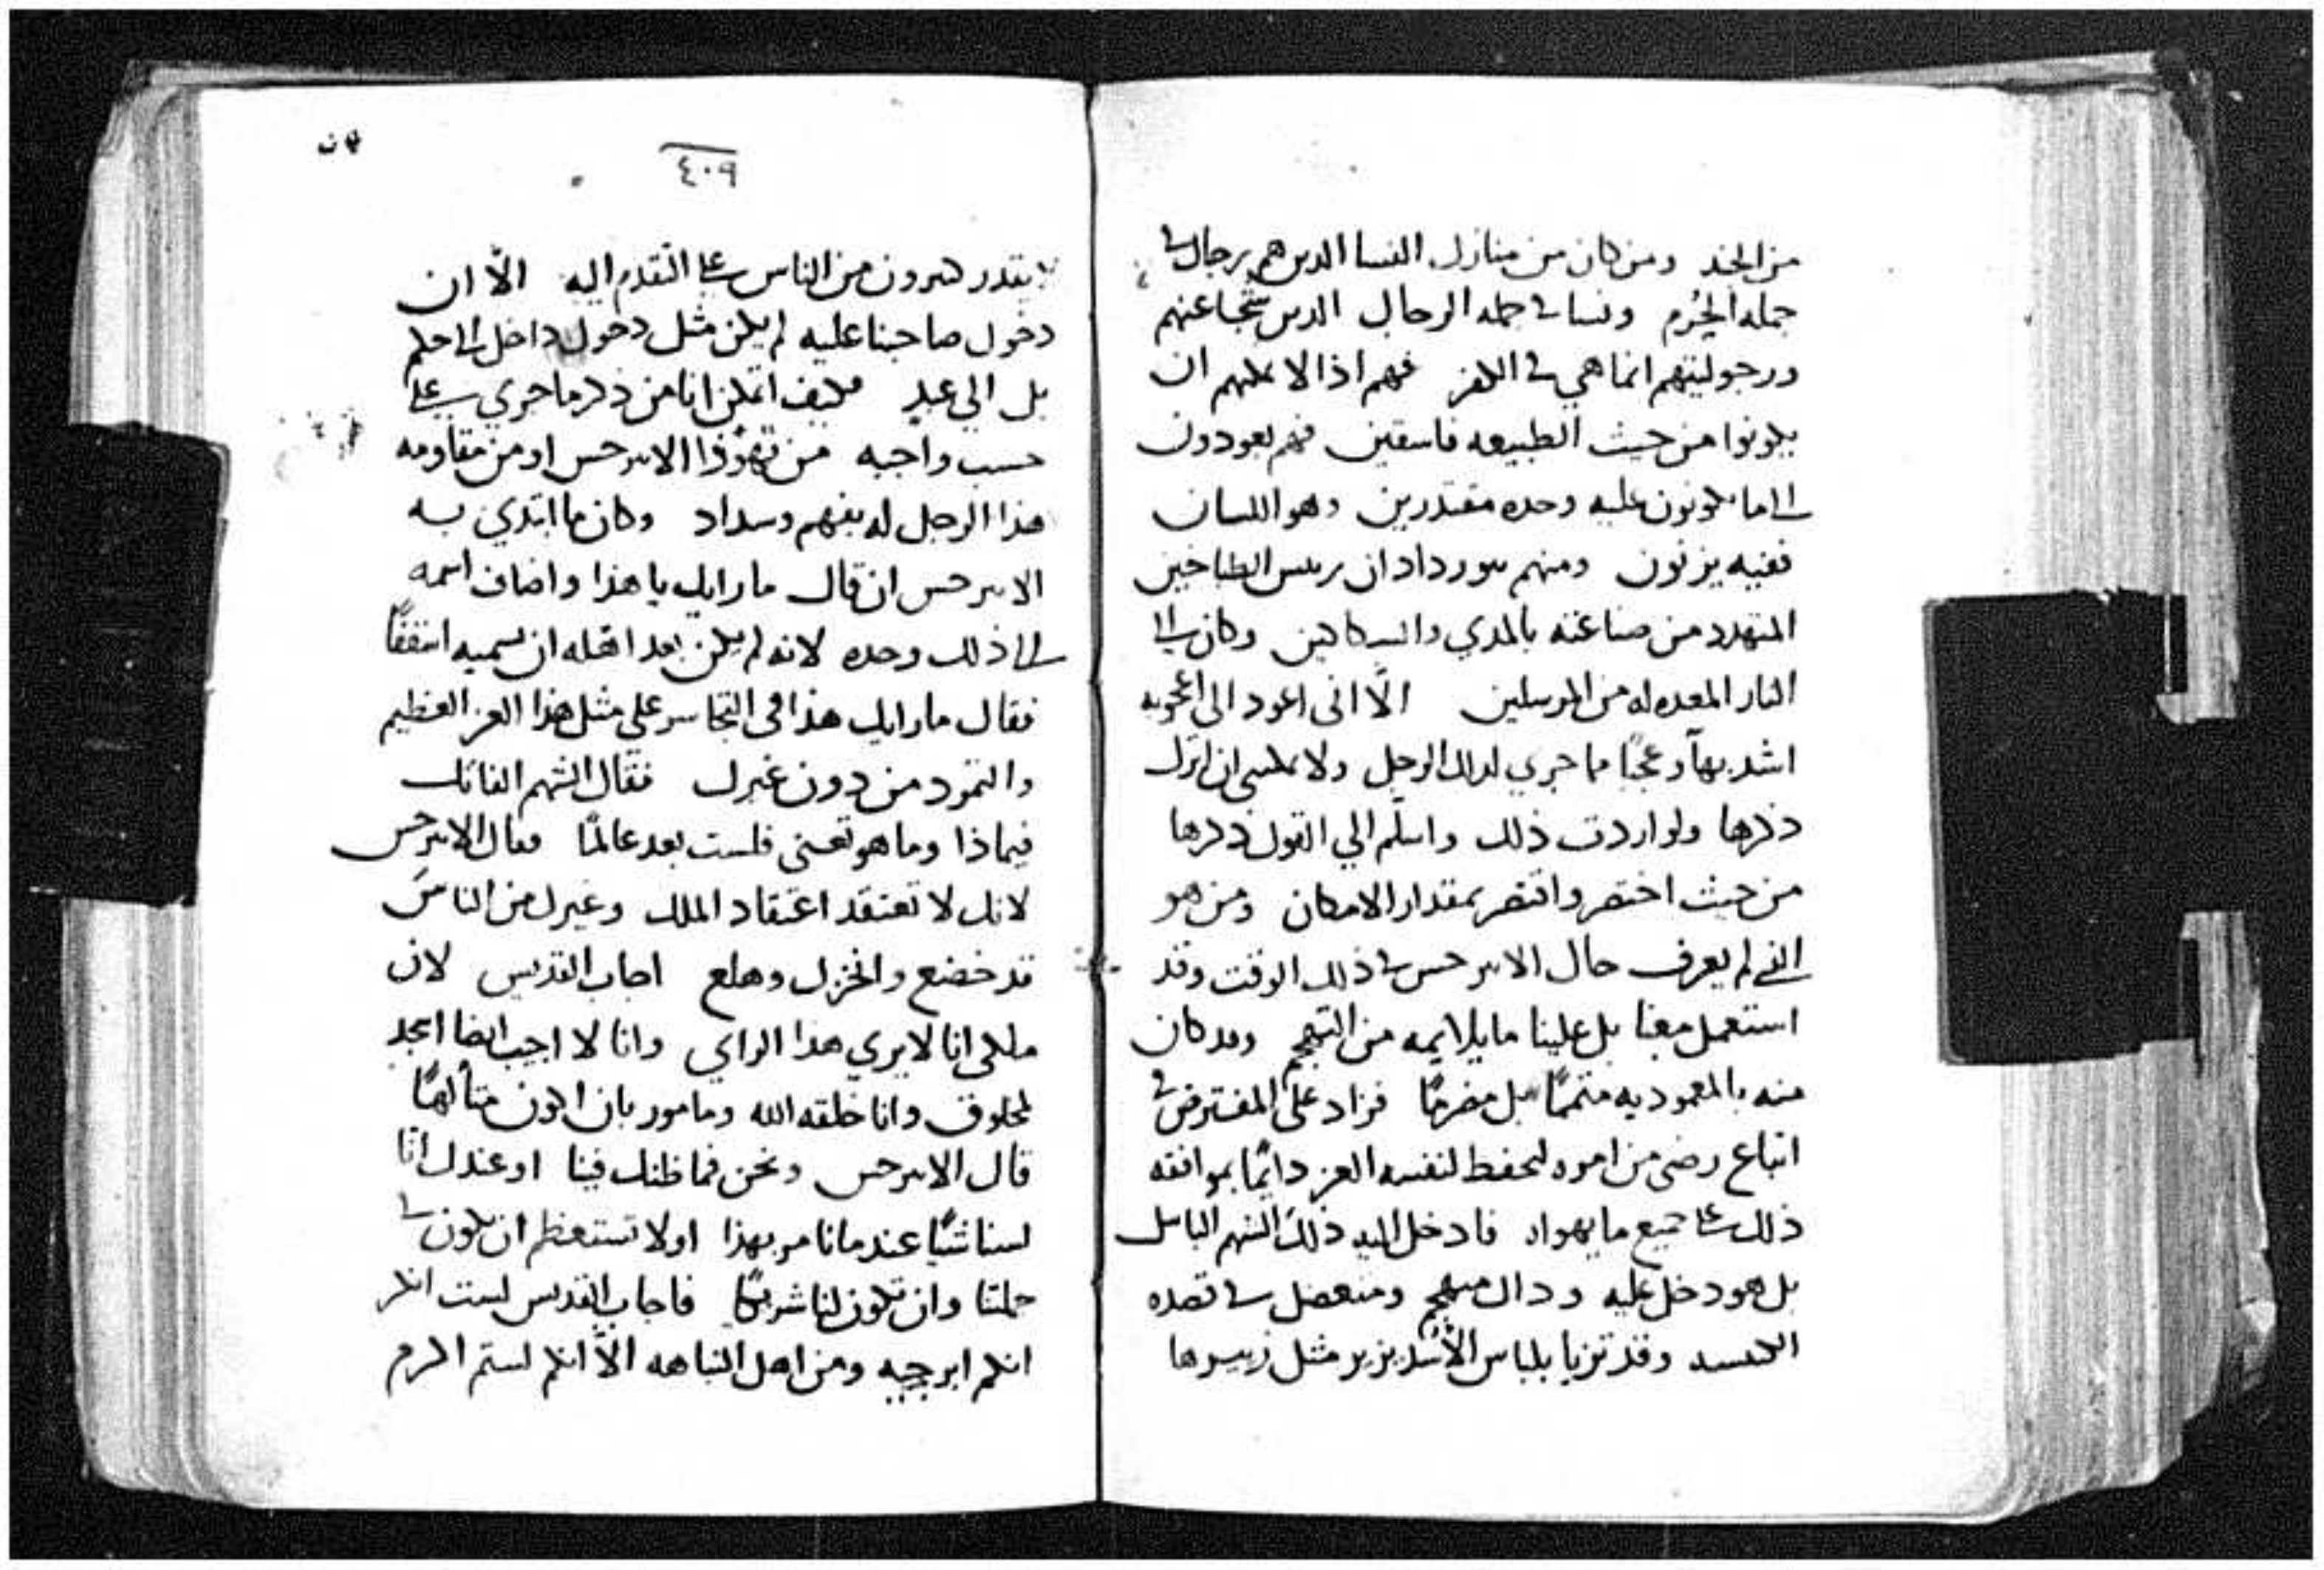 من الجند ومن كان من منازل النسا الدىن هم رجال في
جمله الحُرم ونسا في حمله الرحال الدىن شجاعتهم
ورجوليتهم انما هي في الكفر فهم اذا لا يمكنهم ان
يكونوا من حيث الطبيعه فاسقين فهم يعودون
الى ما يكونون عليه وحده مقتدرين وهو اللسان
ففيه يزنون ومنهم ىىوردادان رىىس الطباخين
المتهدد من صناعته بالمدي والسكاكين وكان الى
النار المعده له من المرسلين الّا انى اعود الى اعجوبه
اشد بهآ وعجبًا مما جري لدلك الرجل ولا يمكىنى ان اترك
ذكرها ولو اردت ذلك واسلّم الي القول ذكرها
من حيث اختصر واقتصر بمقدار الامكان ومن هو
الذي لم يعرف حال الابىرحس في ذلك الوقت وقد
استعمل معنا بل علينا ما يلايمه من التهجم وقد كان
منه بالمعموديه متممًا بل مضرمًا فزاد على المفترض في
اتباع رضى من امره ليحفظ لنفسه العز دايمًا بموافقه
ذلك على جميع ما يهواه فادخل اليه ذلك الشهم الباسل
بل هو دخل عليه وداك متهجم ومنعضل في قصده
الكنىسه وقد تزيا بلباس الأسد يزير مثل زييرها
٤٠٩
لا يقدر كثىرون من الناس على التقدم اليه الّا ان
دخول صاحبنا عليه لم يكن مثل دخول داخل الى حكم
بل الى عيد فكيف اتمكن انا من ذكر ما جري على
حسب واجبه من تهوّر الابىرحس او من مقاومه
هذا الرجل له بفهم وسداد وكان ما ابتدي به
الابىرحس ان قال ما رايك يا هذا واضاف اسمه
الى ذلك وحده لانه لم يكن بعد اهّله ان يسميه اسقفًا
فقال ما رايك هذا في التجاسر على مثل هذا العز العظيم
والتمرد من دون غيرك فقال الشهم الفاتك
فيماذا وما هو تعنى فلست بعد عالمًا فقال الابىرحس
لانك لا تعتقد اعتقاد الملك وغيرك من الناس
قد خضع وانخزل وهلع اجاب القديس لان
ملكى انا لا يري هذا الراي وانا لا اجيب ايضا اسجد
لمخلوق وانا خلقه الله ومامور بان اكون متألهًا
قال الابىرحس ونحن فما ظنك فينا او عندك انّا
لسنا شيًّا عندما نامر بهذا او لا تستعظم ان تكون في
جملتنا وان تكون لنا شريكًا فاجاب القديس لست انكر
انكم ابرجيه ومن اهل النباهه الّا انكم لستم اكرم